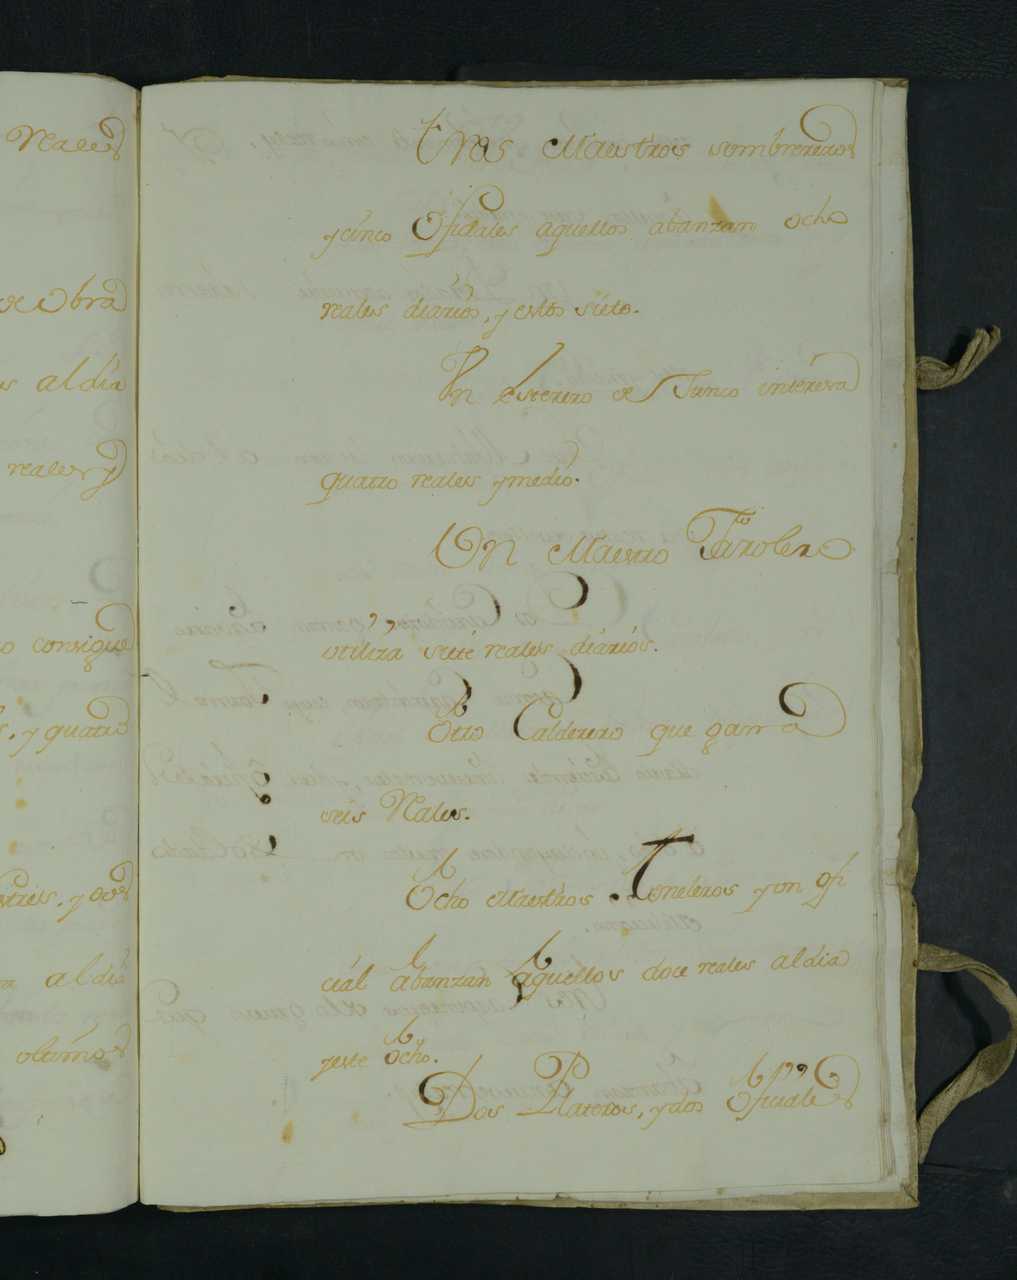 Reales
de Obra
s al dia
reales y
o consigue
s, y quatro
y dos
al dia
ultimos
Tres Maestros sombrereros
y cinco Oficiales aquellos abanzan ocho
reales diarios, y estos siete.
Un Esterero de Junco interesa
quatro reales y medio.
Un Maestro Farolero
utiliza siete reales diarios.
Otro Calderero que gana
seis Reales.
Ocho Maestros Toneleros y un ofi
cial abanzan aquellos doce reales al dia
y este Ocho.
Dos Plateros, y dos Oficiales